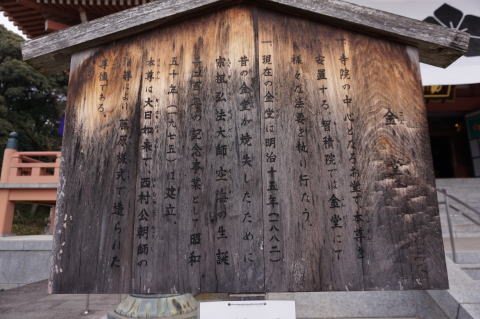 金堂
一、寺院の中心となるお堂で本尊を
安置する。智積院では金堂にて
様々な法要を執り行なう。
一、現在の金堂は明治十五年(一八八二)
昔の金堂が焼失したために
宗祖弘法大師空海の生誕
千二百年の記念事業として昭和
五十年(一九七五)に建立。
本尊は大日如来で西村公朝師の
藤原様式で造られた
尊像である。